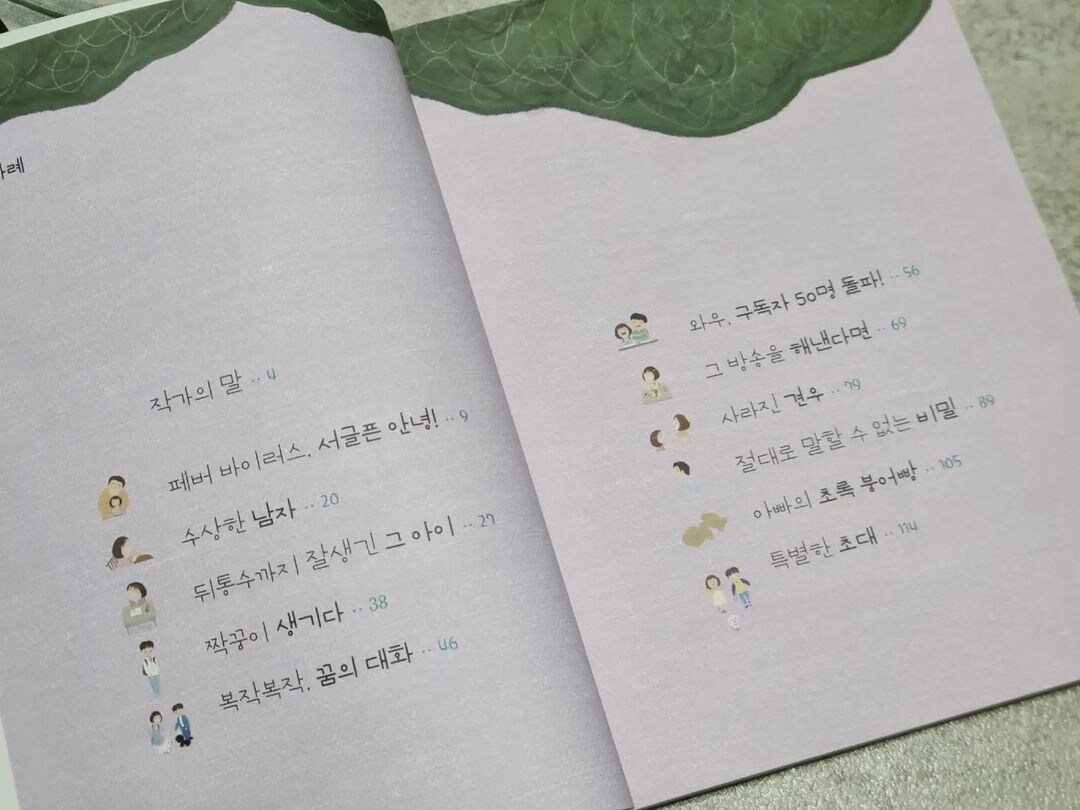 차례
작가의 말 ·· 4
페버 바이러스, 서글픈 안녕! ·· 9
수상한 남자 ·· 20
뒤통수까지 잘생긴 그 아이 ·· 27
짝꿍이 생기다 ·· 38
복작복작, 꿈의 대화 ·· 46
와우, 구독자 50명 돌파! ·· 56
그 방송을 해낸다면 ·· 69
사라진 견우 ·· 79
절대로 말할 수 없는 비밀 ·· 89
아빠의 초록 붕어빵 ·· 105
특별한 초대 ·· 114